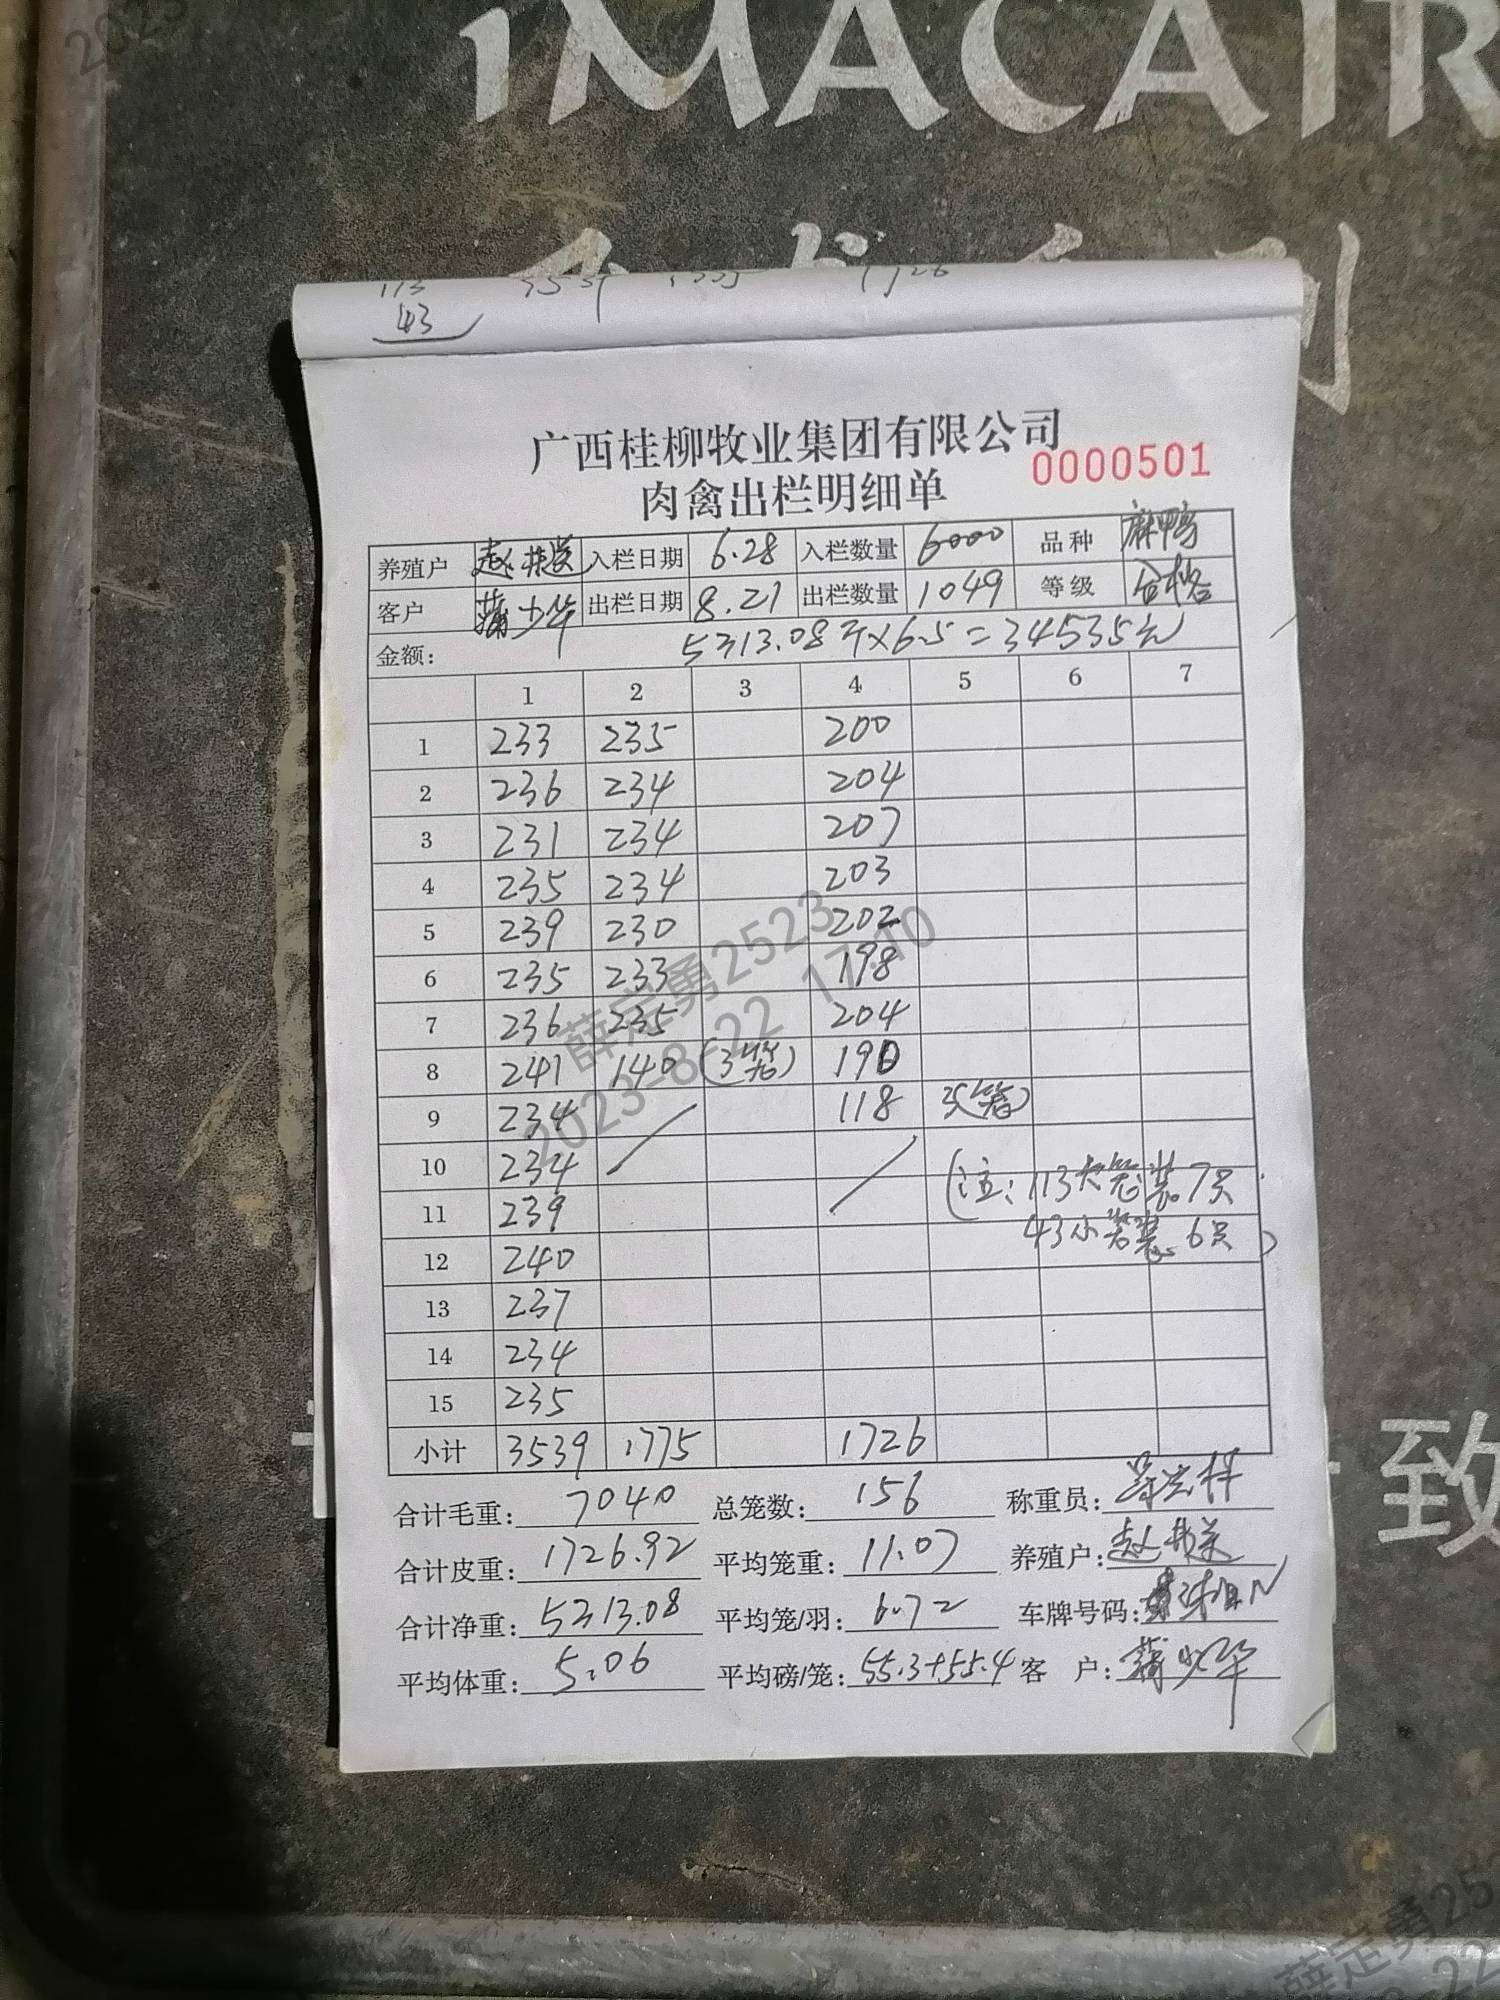 iMACAIR
43
1726
广西桂柳牧业集团有限公司
肉禽出栏明细单 0000501
养殖户 入栏日期 6.28 入栏数量 6000 品种 麻鸭
客户 蒲少华 出栏日期 8.21 出栏数量 1049 等级 合格
金额: 5313.08斤×6.5=34535元
1 2 3 4 5 6 7
1 233 235 200
2 236 234 204
3 231 234 207
4 235 234 203
5 239 230 202
6 235 233 198
7 236 235 204
8 241 140 (3笼) 190
9 234 118 3(笼)
10 234
11 239
(注:113大笼装7只
43小笼装6只)
12 240
13 237
14 234
15 235
小计 3539 1775 1726
合计毛重: 7040 总笼数: 156 称重员:
合计皮重: 1726.92 平均笼重: 11.07 养殖户:
合计净重: 5313.08 平均笼/羽: 6.72 车牌号码:
平均体重: 5.06 平均磅/笼: 55.3+55.4 客 户: 蒲少华
致
薛定勇2523
2023-8-22 17:10